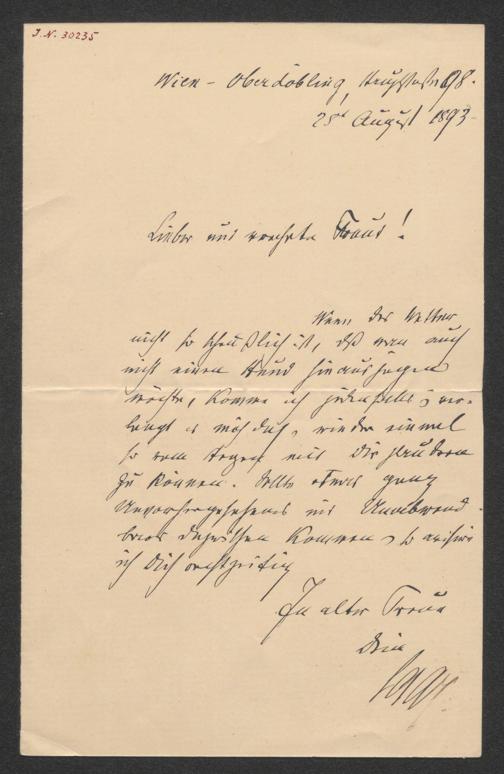 J. N. 30235
Wien – Oberdöbling, Hauptstraße 98.
25t August 1893
Lieber und verehrter Freund!
Wenn das Wetter
nicht so scheußlich ist, daß man auch
nicht einen Hund hinausjagen
möchte, komme ich jedenfalls; ver-
langt es mich doch, wieder einmal
so vom Herzen mit Dir plaudern
zu können. Sollte etwas ganz
Unvorhergesehenes und Unabwend-
bares dazwischen kommen, so avisire
ich Dich rechtzeitig
In alter Treue
Dein